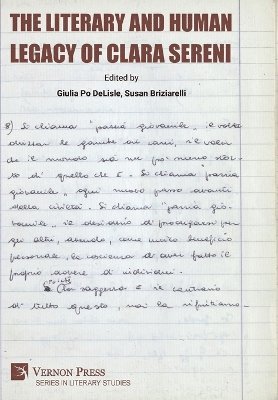 THE LITERARY AND HUMAN
LEGACY OF CLARA SERENI
Edited by
Giulia Po DeLisle, Susan Briziarelli
8) Si chiama "pazzia giovanile", è voler
drizzar le gambe ai cani, è voler
che il mondo sia un po' meno stor-
to di quello che è. Si chiama "pazzia
giovanile", ogni nuovo passo avanti
della civiltà. Si chiama "pazzia gio-
vanile", il desiderio di prodigarsi per
gli altri, avendo, come unico beneficio
personale, la coscienza di aver fatto il
proprio dovere di individui.
poiché
la saggezza è il contrario
di tutto questo, noi la rifiutiamo.
VERNON PRESS
SERIES IN LITERARY STUDIES